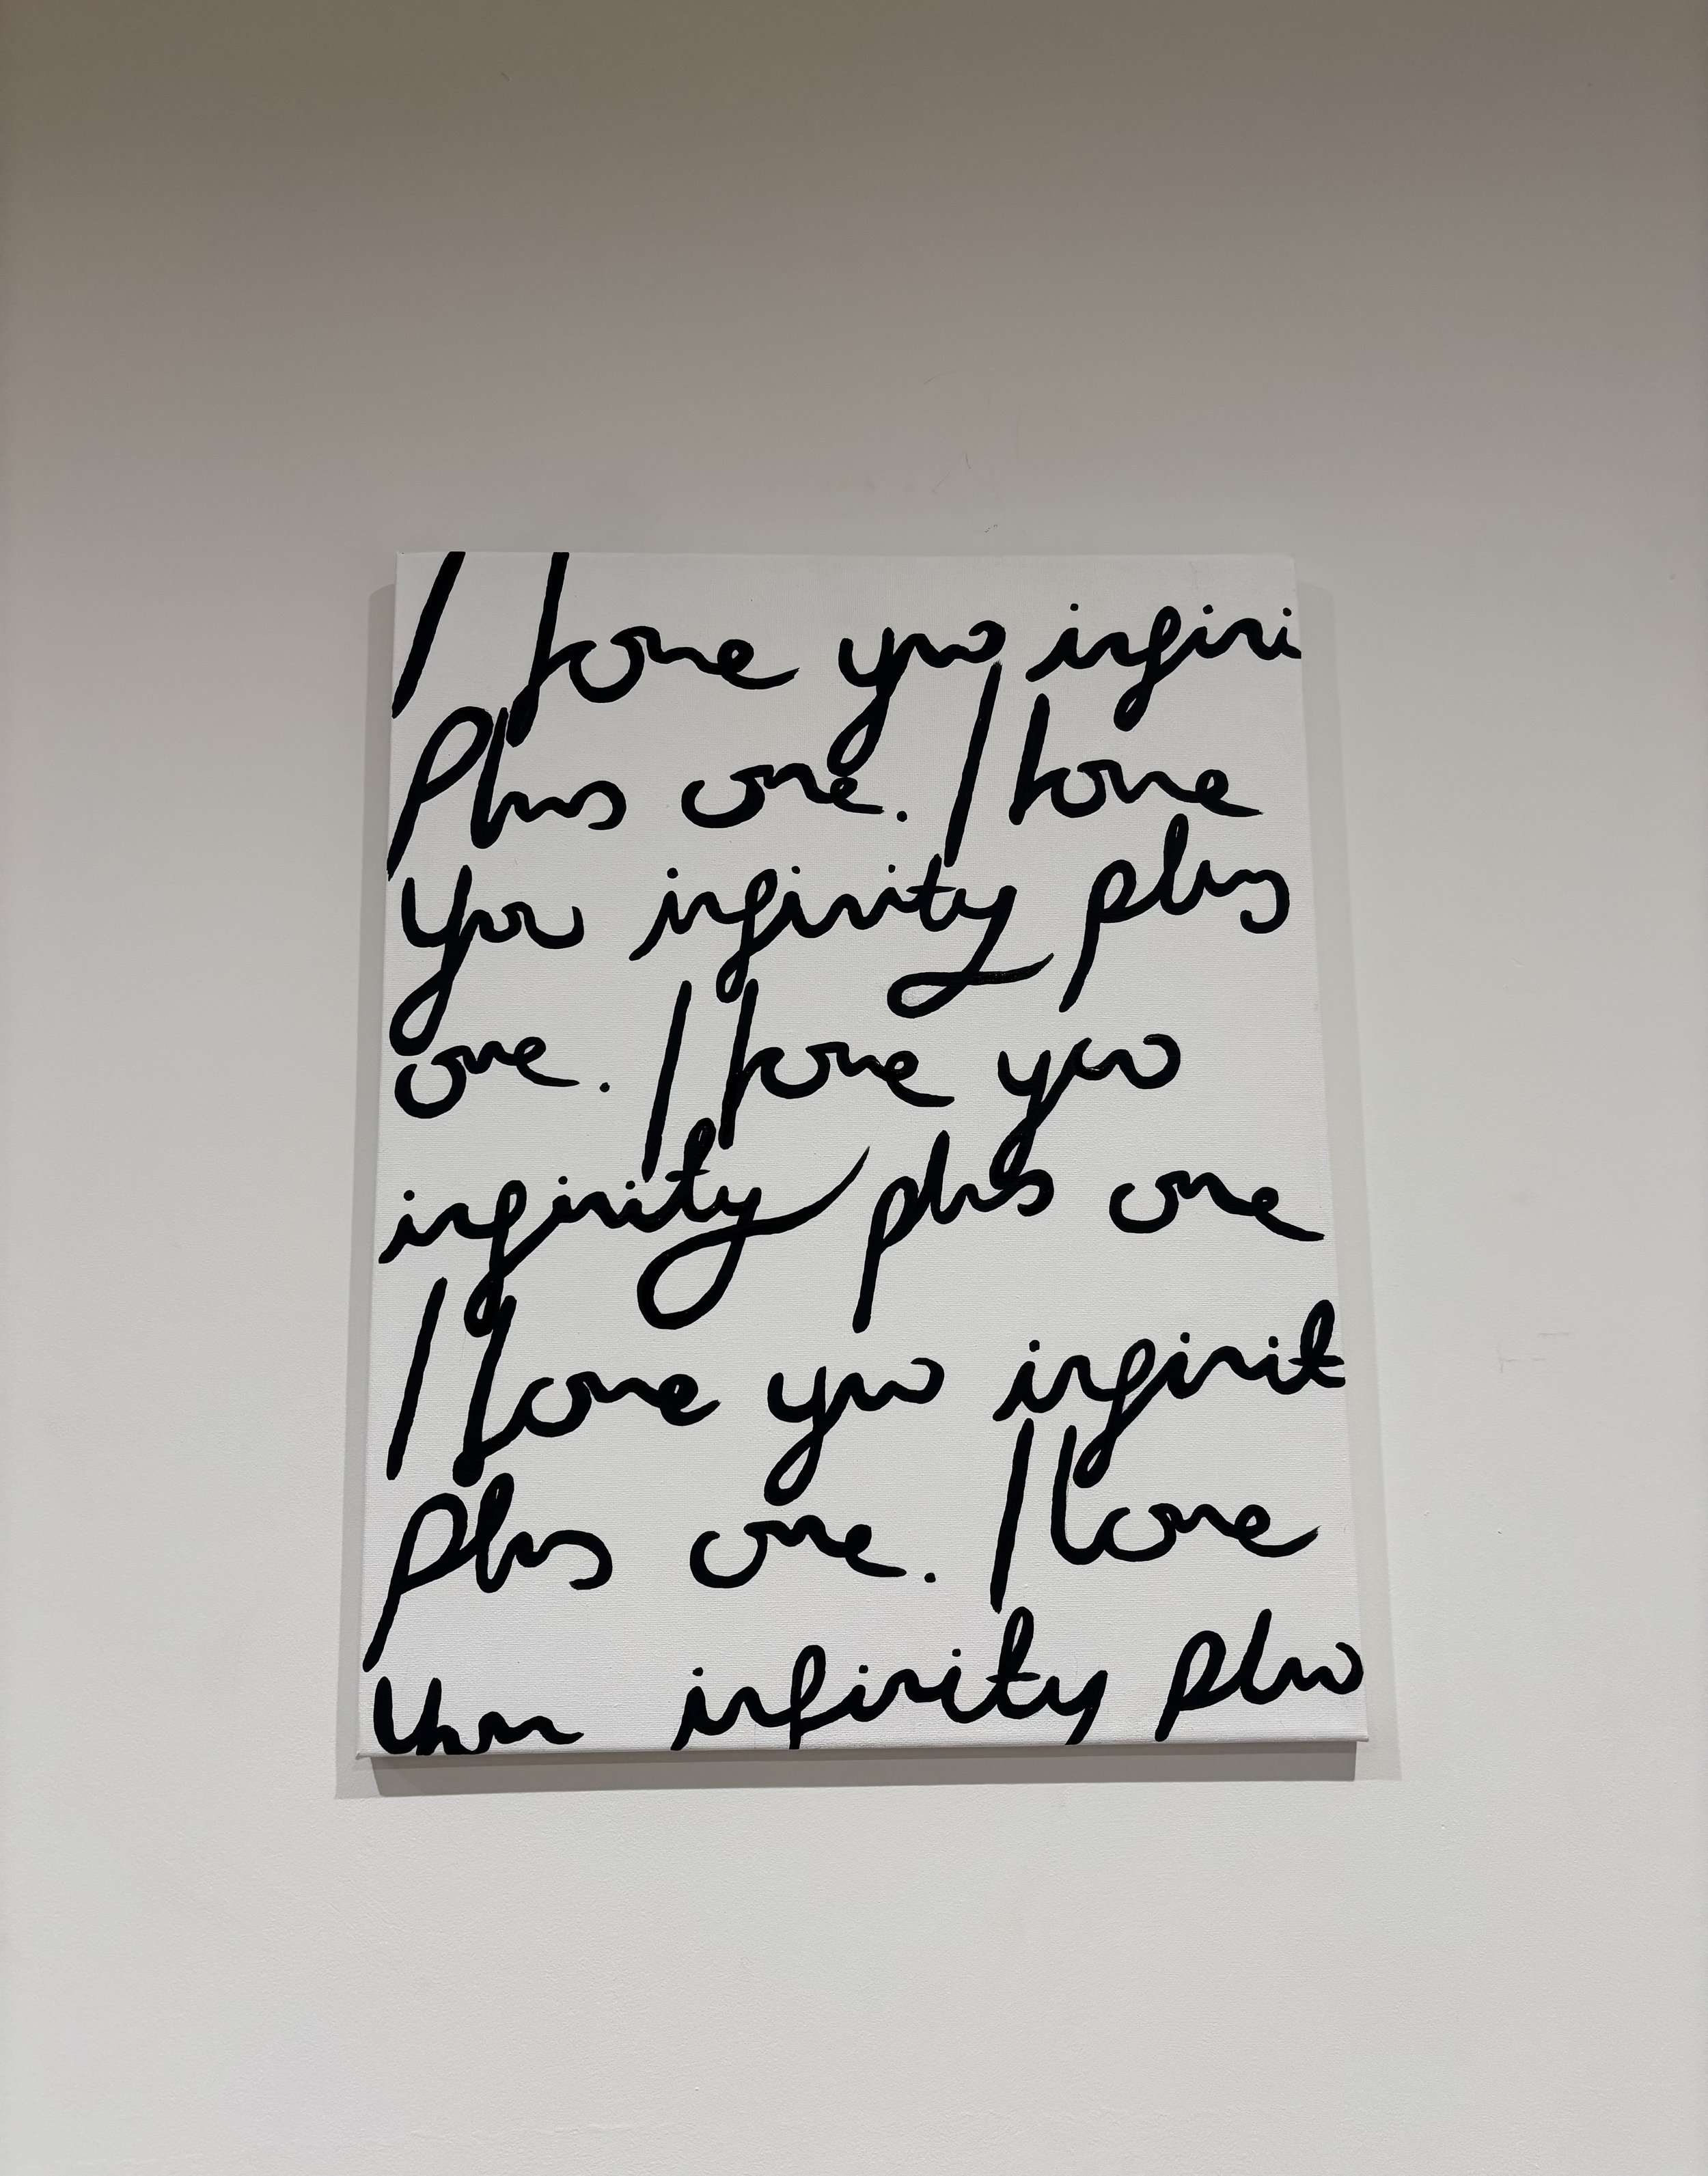 I love you infini
Plus one. I love
you infinity plus
one. I love you
infinity plus one
I love you infinit
Plus one. I love
you infinity plus